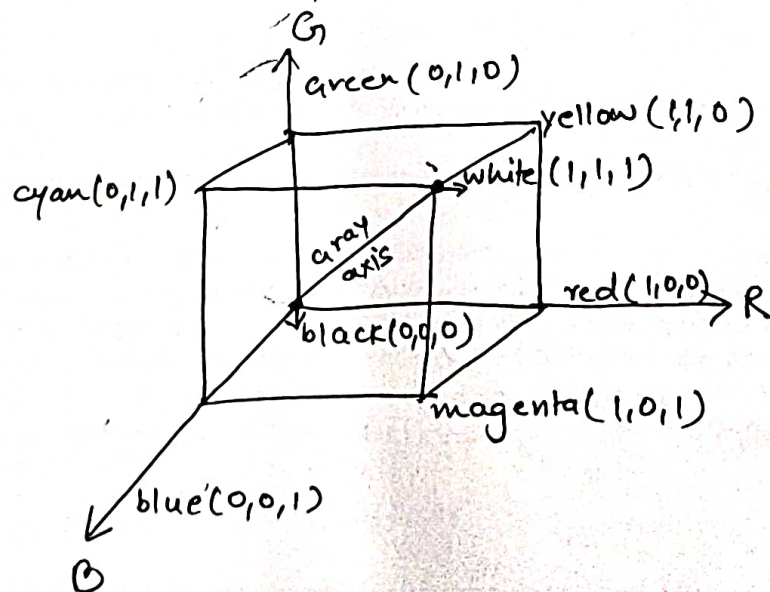 G
Green (0,1,0)
yellow (1,1,0)
cyan (0,1,1)
white (1,1,1)
Gray
axis
red (1,0,0)
R
black (0,0,0)
magenta (1,0,1)
blue (0,0,1)
B